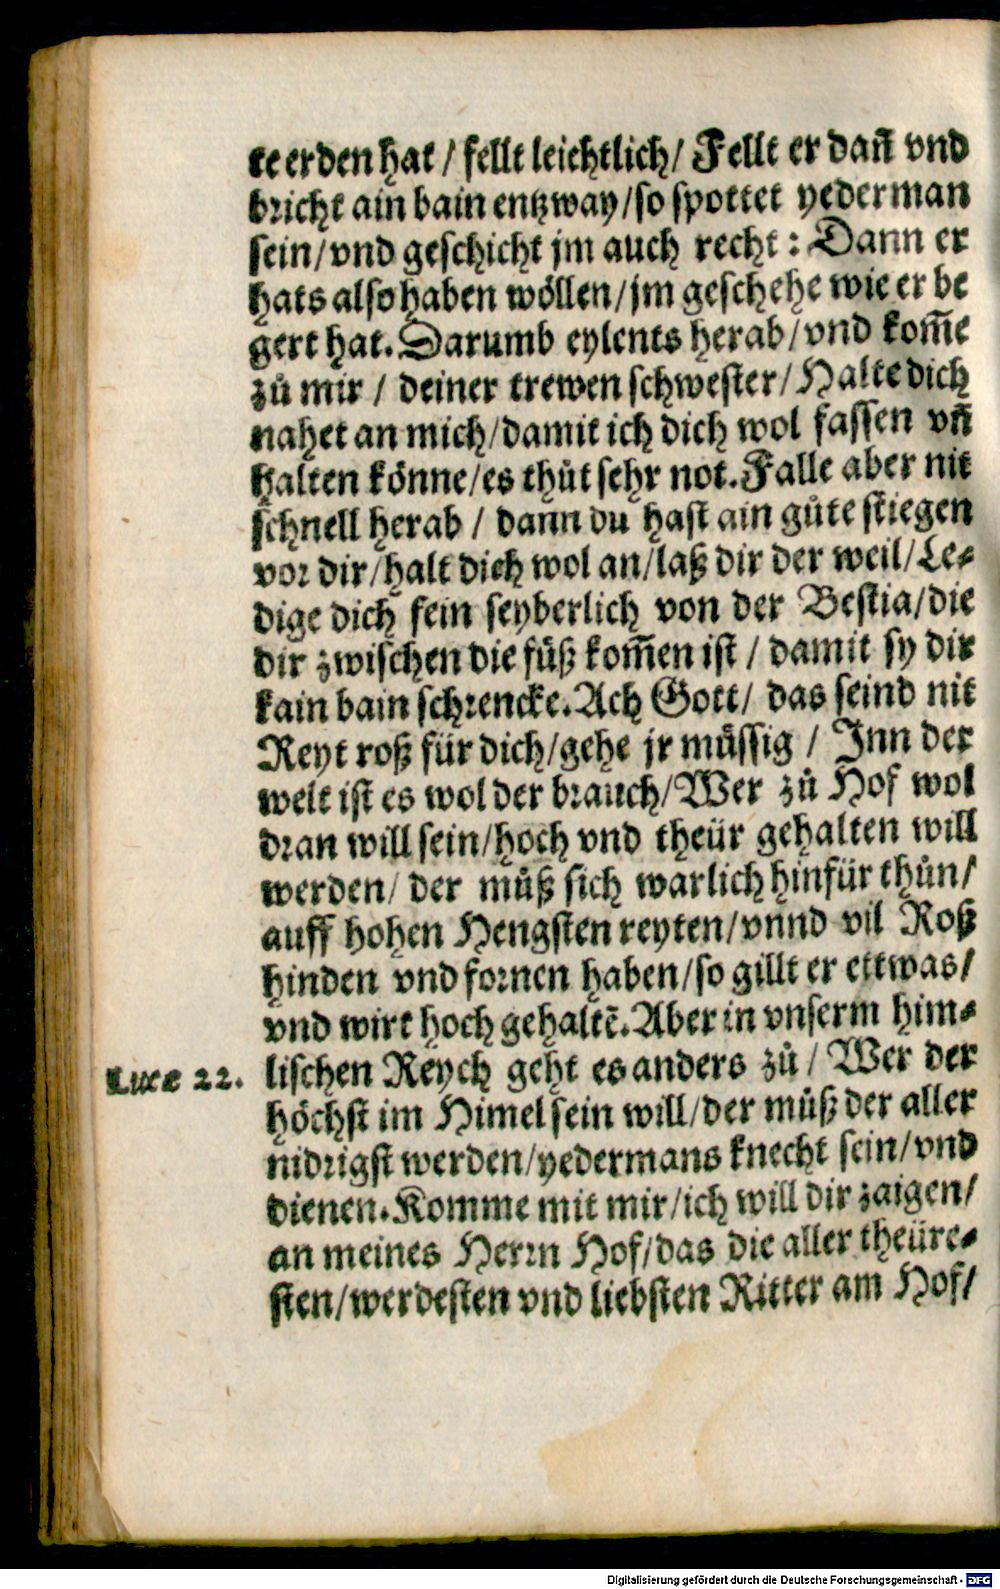 te erden hat / fellt leichtlich / Fellt er dañ vnd
bricht ain bain entzway / so spottet yederman
sein / vnd geschicht jm auch recht : Dann er
hats also haben wöllen / jm geschehe wie er be
gert hat. Darumb eylents herab / vnd kom̃e
zů mir / deiner trewen schwester / Halte dich
nahet an mich / damit ich dich wol fassen vñ
halten könne / es thůt sehr not. Falle aber nit
schnell herab / dann du hast ain gůte stiegen
vor dir / halt dich wol an / laß dir der weil / Le⸗
dige dich fein seyberlich von der Bestia / die
dir zwischen die füß kom̃en ist / damit sy dir
kain bain schrencke. Ach Gott / das seind nit
Reyt roß für dich / gehe jr müssig / Inn der
welt ist es wol der brauch / Wer zů Hof wol
dran will sein / hoch vnd theür gehalten will
werden / der můß sich warlich hinfür thůn /
auff hohen Hengsten reyten / vnnd vil Roß
hinden vnd fornen haben / so gillt er ettwas /
vnd wirt hoch gehaltẽ. Aber in vnserm him⸗
Luce 22. lischen Reych geht es anders zů / Wer der
höchst im Himel sein will / der můß der aller
nidrigst werden / yedermans knecht sein / vnd
dienen. Komme mit mir / ich will dir zaigen /
an meines Herrn Hof / das die aller theüre⸗
sten / werdesten vnd liebsten Ritter am Hof /
Digitalisierung gefördert durch die Deutsche Forschungsgemeinschaft - DFG